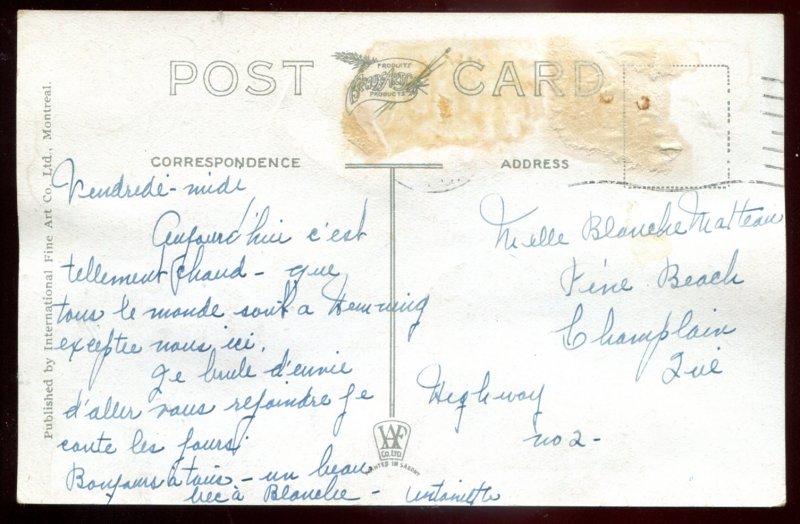 POST CARD
PRODUITS
PRODUCTS
CORRESPONDENCE
ADDRESS
Published by International Fine Art Co., Ltd., Montreal.
Vendredi-midi,
Aujourd'hui c'est
tellement chaud - que
tous le monde sont a Hemming
exceptie nous, ici.
Je brule d'envie
d'aller vous rejoindre je
conte les jours.
Bonjours à tous - un beau
bec à Blanche - Antoinette
Melle Blanche Matteau
Pine Beach
Champlain
Que
Highway
no 2-
CO. LTD.
PRINTED IN SAXONY